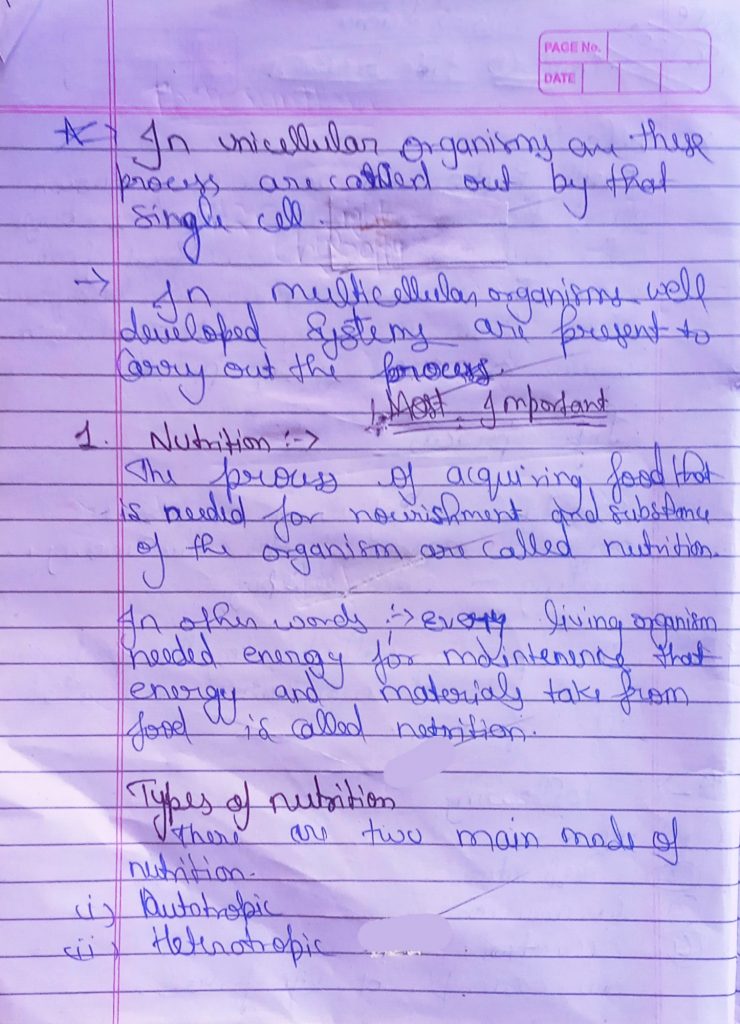 PAGE No.
DATE
In unicellular organisms are these
process are carried out by that
single cell.
→ In multicellular organisms well
developed systems are present to
Carry out the process.
Most Important
1. Nutrition :→
The process of acquiring food that
is needed for nourishment and substance
of the organism are called nutrition.
In other words :→ every living organism
needed energy for maintenence that
energy and materials take from
food is called netrition.
Types of nutrition
There are two main mode of
nutrition.
(i) Autotropic
(ii) Heterotropic